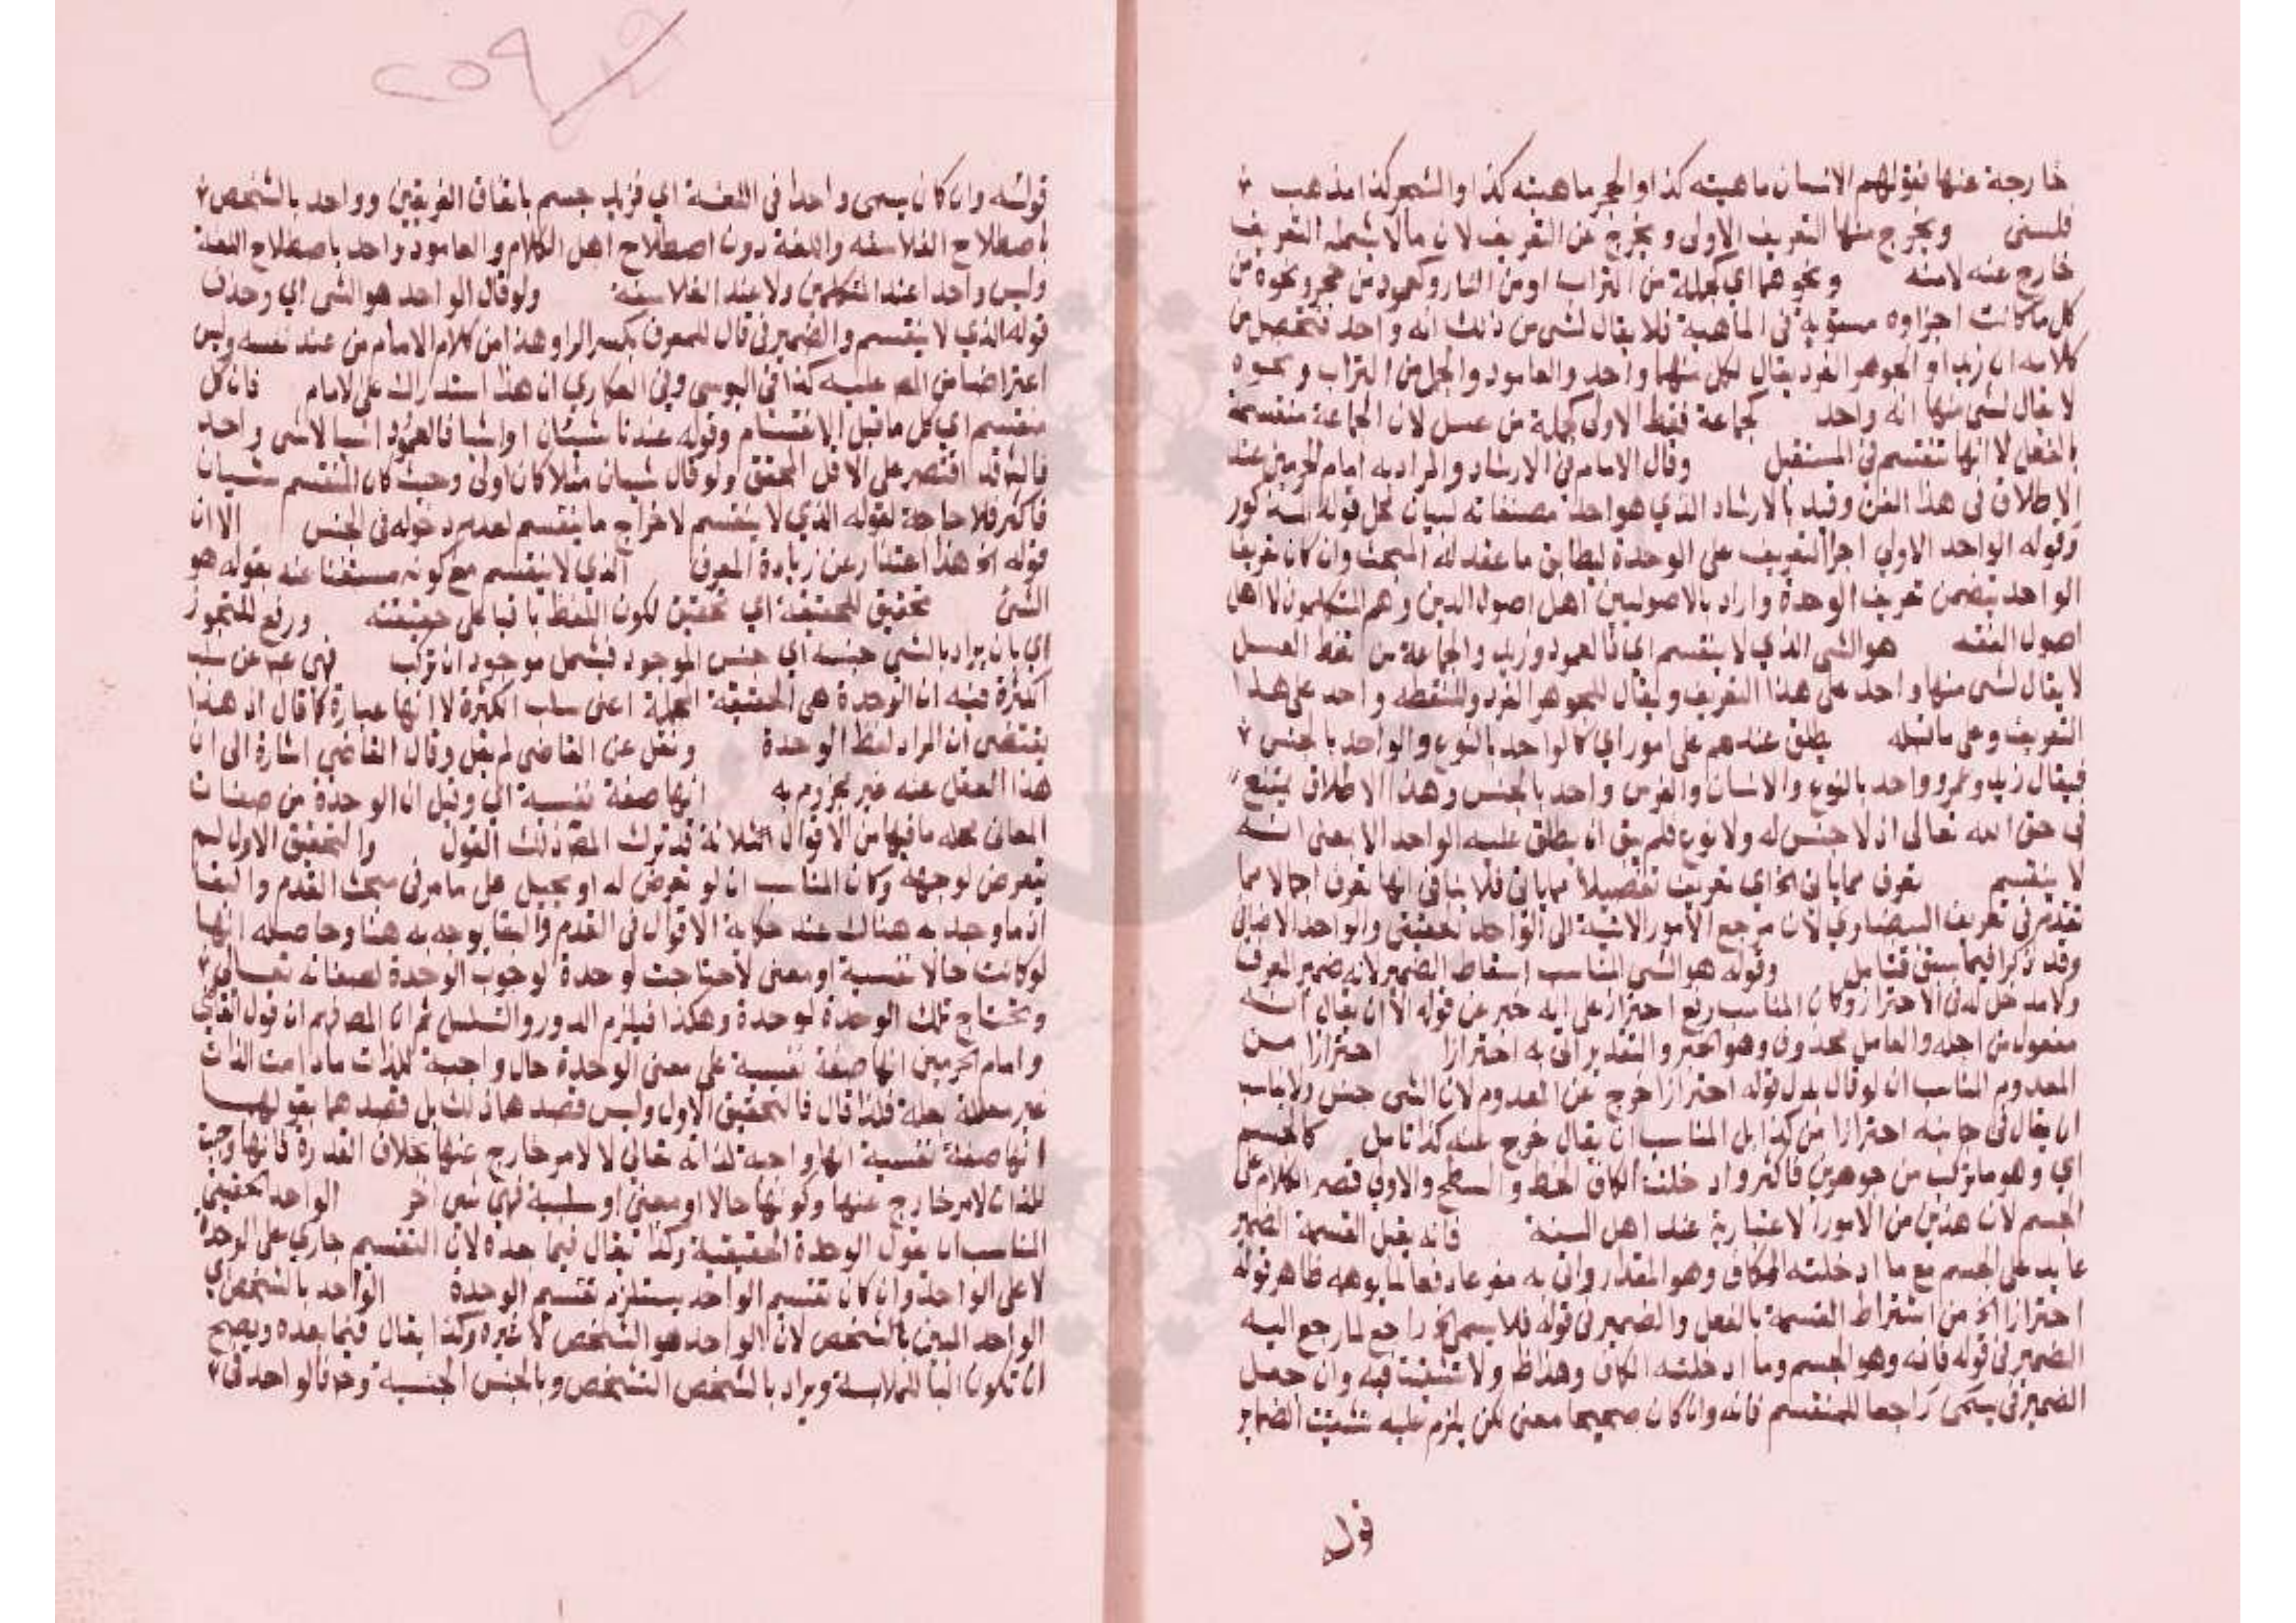 خارجة عنها فقولهم الانسان ماهيته كذا والحجر ماهيته كذا والشجر كذا مذهب
فلسفى ويخرج منها التعريف الاولى ويخرج عن التعريف لان مالا يشمله التعريف
خارج عنه لا منه ونحوهما اي كجملة من التراب او من النار وكعمود من حجر ونحوه من
كل ما كانت اجزاوه مستوية فى الماهية فلا يقال لشى من ذلك انه واحد فتحصل من
كلامه ان زيدا والجوهر الفرد يقال لكل منهما واحد والعامود والجمل من التراب ونحوه
لا يقال لشى منها انه واحد كجماعة فقط الاولى كجملة من عسل لان الجماعة منقسمة
بالفعل لا انها تنقسم فى المستقبل وقال الامام فى الارشاد والمراد به امام الحرمين عند
الاطلاق فى هذا الفن وقيد بالارشاد الذي هو احد مصنفاته لبيان محل قوله المذكور
وقوله الواحد الاولى اجرا التعريف على الوحدة ليطابق ما عقد له المبحث وان كان تعريف
الواحد يتضمن تعريف الوحدة واراد بالاصوليين اهل اصول الدين وهم المتكلمون لا اهل
اصول الفقه هو الشى الذي لا ينقسم اي فالعمود وزيد والجماعة من نقط العسل
لا يقال لشى منها واحد على هذا التعريف ويقال للجوهر الفرد والنقطه واحد على هذا
التعريف وعلى ما قبله يطلق عندهم على امور اي كالواحد بالنوع والواحد بالجنس
فيقال زيد وعمرو واحد بالنوع والانسان والفرس واحد بالجنس وهذا الاطلاق يمتنع
فى حق الله تعالى اذ لا جنس له ولا نوع فلم يبق ان يطلق عليه الواحد الا بمعنى انه
لا ينقسم تعرف مما ياتى الخ اي تعريف تفصيلا مما ياتى فلا ينافى انها تعرف اجمالا مما
تقدم فى تعريف البيضاوي لان مرجع الامور الاتية الى الواحد الحقيقى والواحد الاضافى
وقد ذكرا فيما سبق فتامل وقوله هو الشى المناسب اسقاط الضمير لانه ضمير المعرف
ولا مدخل له فى الاحتراز وكان المناسب رفع احتراز على انه خبر عن قوله الا ان يقال انه
مفعول من اجله والعامل محذوف وهو الخبر والتقدير اتى به احترازا احترازا من
المعدوم المناسب ان لو قال بدل قوله احترازا خرج عن المعدوم لان الشى جنس ولا يناسب
ان يقال فى جانبه احترازا من كذا بل المناسب ان يقال خرج عنه كذا تامل كالجسم
اي وهو ما تركب من جوهرين فاكثر وادخلت الكاف الخط والسطح والاولى قصر الكلام على
الجسم لان هذين من الامور الاعتبارية عند اهل السنة فانه يقبل القسمة الضمير
عايد على الجسم مع ما ادخلته الكاف وهو المقدار واتى به مفرعا دفعا لما يوهمه ظاهر قوله
احترازا الخ من اشتراط القسمة بالفعل والضمير فى قوله فلا يسمى الخ راجع لما رجع اليه
الضمير فى قوله فانه وهو الجسم وما ادخلته الكاف وهذا ظ ولا تشتيت فيه وان جعل
الضمير فى يسمى راجعا للمنقسم فانه وان كان صحيحا معنى لكن يلزم عليه تشتيت الضماير
قوله
قوله وان كان يسمى واحدا فى اللغة اي فزيد جسم باتفاق الفريقين وواحد بالشخص
باصطلاح الفلاسفه واللغة دون اصطلاح اهل الكلام والعامود واحد باصطلاح اللغة
وليس واحدا عند المتكلمين ولا عند الفلاسفة ولو قال الواحد هو الشى اي وحذف
قوله الذي لا ينقسم والضمير فى قال للمعرف بكسر الرا وهذا من كلام الامام من عند نفسه وليس
اعتراضا من المص عليه كذا فى اليوسى وفى العكاري ان هذا استدراك على الامام فان كل
منقسم اي كل ما قبل الانقسام وقوله عندنا شيئان او اشيا فالعمود اشيا لا شى واحد
فالمص قد اقتصر على الاقل المحقق ولو قال شيان مثلا كان اولى وحيث كان المنقسم شيان
فاكثر فلا حاجة لقوله الذي لا ينقسم لاخراج ما ينقسم لعدم دخوله فى الجنس الا ان
قوله الخ هذا اعتذار عن زيادة المعرف الذي لا ينقسم مع كونه مستغنا عنه بقوله هو
الشى تحقيق للحقيقة اي تحقيق لكون اللفظ باقيا على حقيقته ورفع للتجوز
اي بان يراد بالشى جنسه اي جنس الموجود فيشمل موجود ان تركب فهى عبـ عن سلب
الكثرة فيه ان الوحدة هى الحقيقة المجملة اعنى سلب الكثرة لا انها عبارة كما قال اذ هذا
يقتضى ان المراد لفظ الوحدة ونقل عن القاضى لم يقل وقال القاضى اشارة الى ان
هذا النقل عنه غير مجزوم به انها صفة نفسية اي وقيل ان الوحدة من صفات
المعانى فجملة ما فيها من الاقوال الثلاثة قد ترك المص ذلك القول والتحقيق الاول لم
يتعرض لوجهه وكان المناسب ان لو تعرض له او يحيل على ما مر فى مبحث القدم والبقا
اذ ما وجد به هنالك عند حكاية الاقوال فى القدم والبقا يوجه به هنا وحاصله انها
لو كانت حالا نفسية او معنى لاحتاجت لوحدة لوجوب الوحدة لصفاته تعالى
وتحتاج تلك الوحدة لوحدة وهكذا فيلزم الدور والتسلسل ثم ان المص فهم ان قول القاضى
وامام الحرمين انها صفة نفسية على معنى الوحدة حال واجبة للذات ما دامت الذات
غير معللة بعلة فلذا قال فالتحقيق الاول وليس قصدهما ذلك بل قصدهما بقولهما
انها صفة نفسية انها واجبة لذاته تعالى لا لامر خارج عنها بخلاف القدرة فانها وجبت
للذات لامر خارج عنها وكونها حالا او معنى او سلبية فهى شى اخر الواحد الحقيقى
المناسب ان يقول الوحدة الحقيقية وكذا يقال فيما بعده لان التقسيم جاري على الوحدة
لا على الواحد وان كان تقسيم الواحد يستلزم تقسيم الوحدة الواحد بالشخص اي
الواحد المبين بالشخص لان الواحد هو الشخص لا غيره وكذا يقال فيما بعده ويصح
ان تكون البا للملابسة ويراد بالشخص التشخص وبالجنس الجنسية وح فالواحد فى